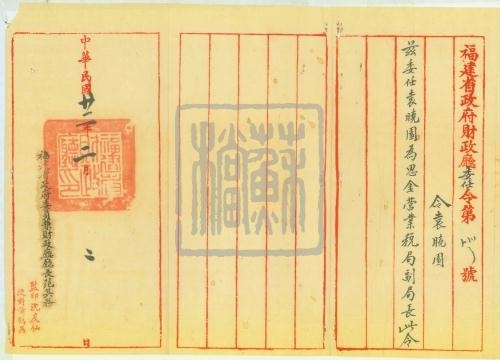 福建省政府財政廳委任令第 號
令袁曉園
茲委任袁曉園為思金營業稅局副局長此令
中華民國廿二年二月二日
福建省政府委員兼財政廳廳長范其務
監印沈友仙
校對
蘇